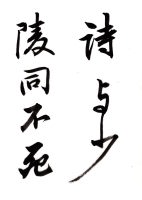 诗与少
陵同不死